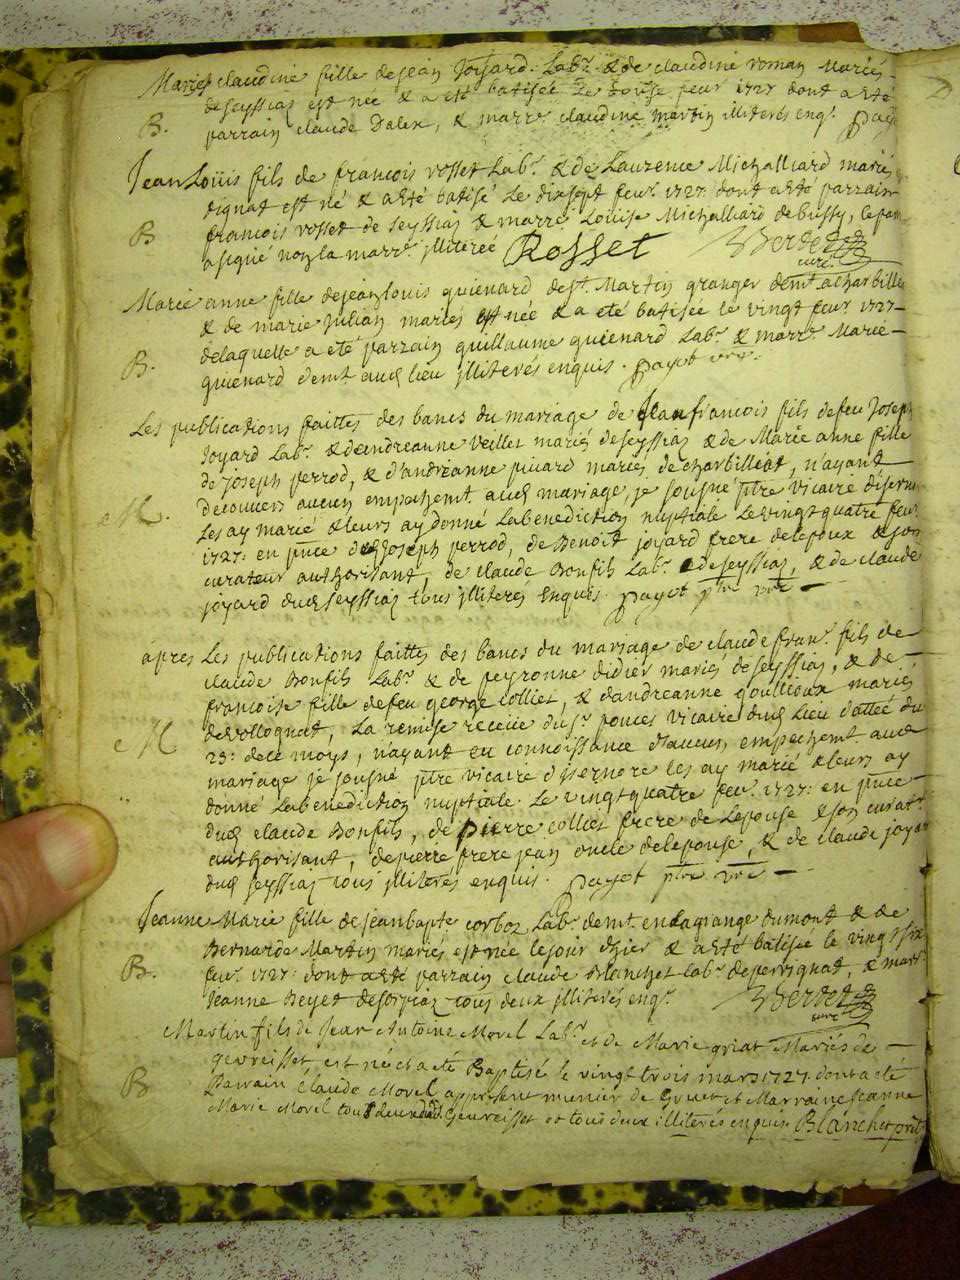 Marie claudine fille de jean Joyard Labr. & de claudine roman Mariés
de seyssiaz est née & a eté batisée le douse feur 1727 dont a eté
B.
parrain claude Dalex, & marre. claudine martin illiterés enq. payot
Jean Loüis fils de françois rosset Labr. & de Laurence Michalliard mariés
dignat est né & a eté batisé Le dix sept feur. 1727. dont a eté parrain
B
françois rosset de seyssiaz & marre. Louise Michalliard de bussy, le parr
a signé non la marre. illiterée Rosset Berdet
curé
Marie anne fille de jean louis guienard de st. Martin granger demt. a charbillat
& de marie Julian mariés est née & a eté batisée le vingt feur. 1727
B.
delaquelle a eté parrain guillaume guienard Labr. & marre. Marie
guienard demt. aud. lieu illiterés enquis. payot vre.
Les publications faittes des bancs du mariage de Jean francois fils de feu Joseph
Joyard Labr. & d'andreanne veillet mariés de seyssiaz & de Marie anne fille
de joseph perrod, & d'andréanne picard mariés de charbilliat, n'ayant
M.
decouvers aucun empechemt. aud. mariage, je sousigné ptre vicaire disernore
Les ay marié & leurs ay donné La benediction nuptiale Le vingt quatre feur.
1727: en pnce dud. Joseph perrod, de Benoît joyard frere delepoux & son
curateur authorisant, de claude Bonfils Labr. de seyssiaz, & de claude
joyard dud. seyssiaz tous illiteres Enquis. payot ptre vre
apres Les publications faittes des bancs du mariage de claude franc. fils de
claude Bonfils Labr. & de peyronne didier mariés de seyssiaz, & de
francoise fille de feu george colliet, & d'andreanne goullioux mariés
M
de vollognat, La remise receüe du sr. ponces vicaire dud. Lieu dattée du
23: de ce moys, n'ayant eu connoissance d'aucun empechemt aud.
mariage je sousigné ptre vicaire disernore les ay marié & leurs ay
donné La benediction nuptiale. Le vingt quatre feur. 1727: en pnce
dud. claude Bonfils, de pierre colliet frere de Lepouse & son curatr.
authorisant, de pierre frere jean oncle de lepouse, & de claude joyard
dud. seyssiaz tous illiterés enquis. payot ptre vre
Jeanne Marie fille de jean bapte. corboz Labr. demt. en la grange dumont & de
Bernarde Martin mariés est née le jour d'hier & a eté batisée le vingt six
B.
feur. 1727. dont a eté parrain claude Blanchet labr. de perrignat, & marr.
Jeanne Beyet de sorpiaz tous deux illiterés enq. Berdet
curé
Martin fils de Jean Antoine Morel Labr. et de Marie griat Mariés de
gevreisset, est né et a eté Baptisé le vingt trois mars 1727. dont a eté
B
Parrain Claude Morel apresent munier de et Marraine Jeanne
Marie Morel tous deux dud. Gevreisset et tous deux illiterés enquis Blanchet prêt.